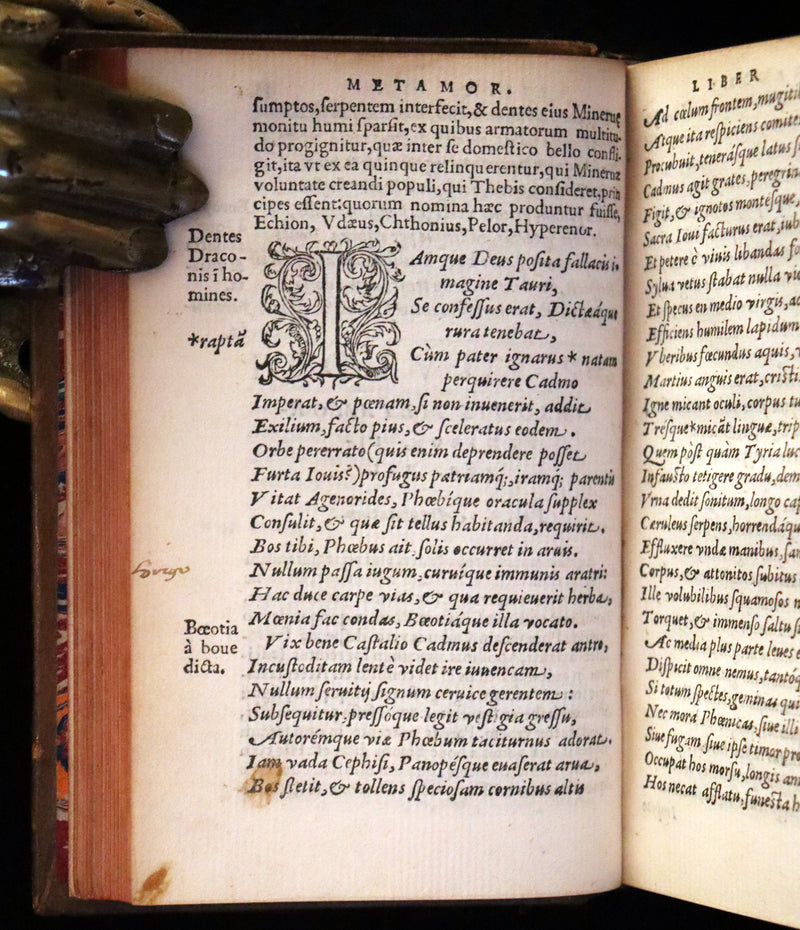 METAMOR.
ſumptos, ſerpentem interfecit, & dentes eius Mineruę
monitu humi ſparſit, ex quibus armatorum multitu-
do progignitur, quæ inter ſe domeſtico bello confli-
git, ita vt ex ea quinque relinquerentur, qui Mineruæ
voluntate creandi populi, qui Thebis conſideret, prin
cipes eſſent: quorum nomina hæc produntur fuiſſe,
Echion, Vdæus, Chthonius, Pelor, Hyperenor.
Dentes
Draco-
nis ī ho-
mines.
IAmque Deus poſita fallacis i-
magine Tauri,
Se confeſſus erat, Dictæáque
rura tenebat,
*raptā
Cùm pater ignarus * natam
perquirere Cadmo
Imperat, & pœnam, ſi non inuenerit, addit
Exilium, facto pius, & ſceleratus eodem.
Orbe pererrato (quis enim deprendere poſſet
Furta Iouis?) profugus patriamq;, iramq; parentis
Vitat Agenorides, Phœbíque oracula ſupplex
Conſulit, & quæ ſit tellus habitanda, requirit.
Bos tibi, Phœbus ait, ſolis occurret in aruis.
Nullum paſſa iugum, curuíque immunis aratri:
Hac duce carpe vias, & qua requieuerit herba,
Mœnia fac condas, Bœotiáque illa vocato.
Bœotia
à boue
dicta.
Vix bene Caſtalio Cadmus deſcenderat antro,
Incuſtoditam lentè videt ire iuuencam,
Nullum ſeruitij ſignum ceruice gerentem:
Subſequitur, preſſóque legit veſtigia greſſu,
Autorémque viæ Phœbum taciturnus adorat.
Iam vada Cephiſi, Panopéſque euaſerat arua,
Bos ſtetit, & tollens ſpecioſam cornibus altis
LIBER
Ad cœlum frontem, mugiti
Atque ita reſpiciens comite
Procubuit, teneráſque latus ſ
Cadmus agit grates, peregrin
Figit, & ignotos monteſque,
Sacra Ioui facturus erat, iub
Et petere è viuis libandas fo
Sylua vetus ſtabat nulla vio
Et ſpecus en medio virgis, ac
Efficiens humilem lapidum
Vberibus fœcundus aquis, v
Martius anguis erat, criſti
Igne micant oculi, corpus tu
Treſque * micāt linguæ, trip
Quem pòſt quàm Tyria luc
Infauſto tetigere gradu, dem
Vrna dedit ſonitum, longo cap
Cæruleus ſerpens, horrendáqu
Effluxere vndæ manibus, ſan
Corpus, & attonitos ſubitus
Ille volubilibus ſquamoſos n
Torquet, & immenſo ſaltu ſ
Ac media plus parte leues e
Diſpicit omne nemus, tantóq
Si totum ſpectes, geminas qui
Nec mora Phœnicas, ſiue illi
Siue fugam, ſiue ipſe timor pro
Occupat hos morſu, longis am
Hos necat afflatu, funeſta h